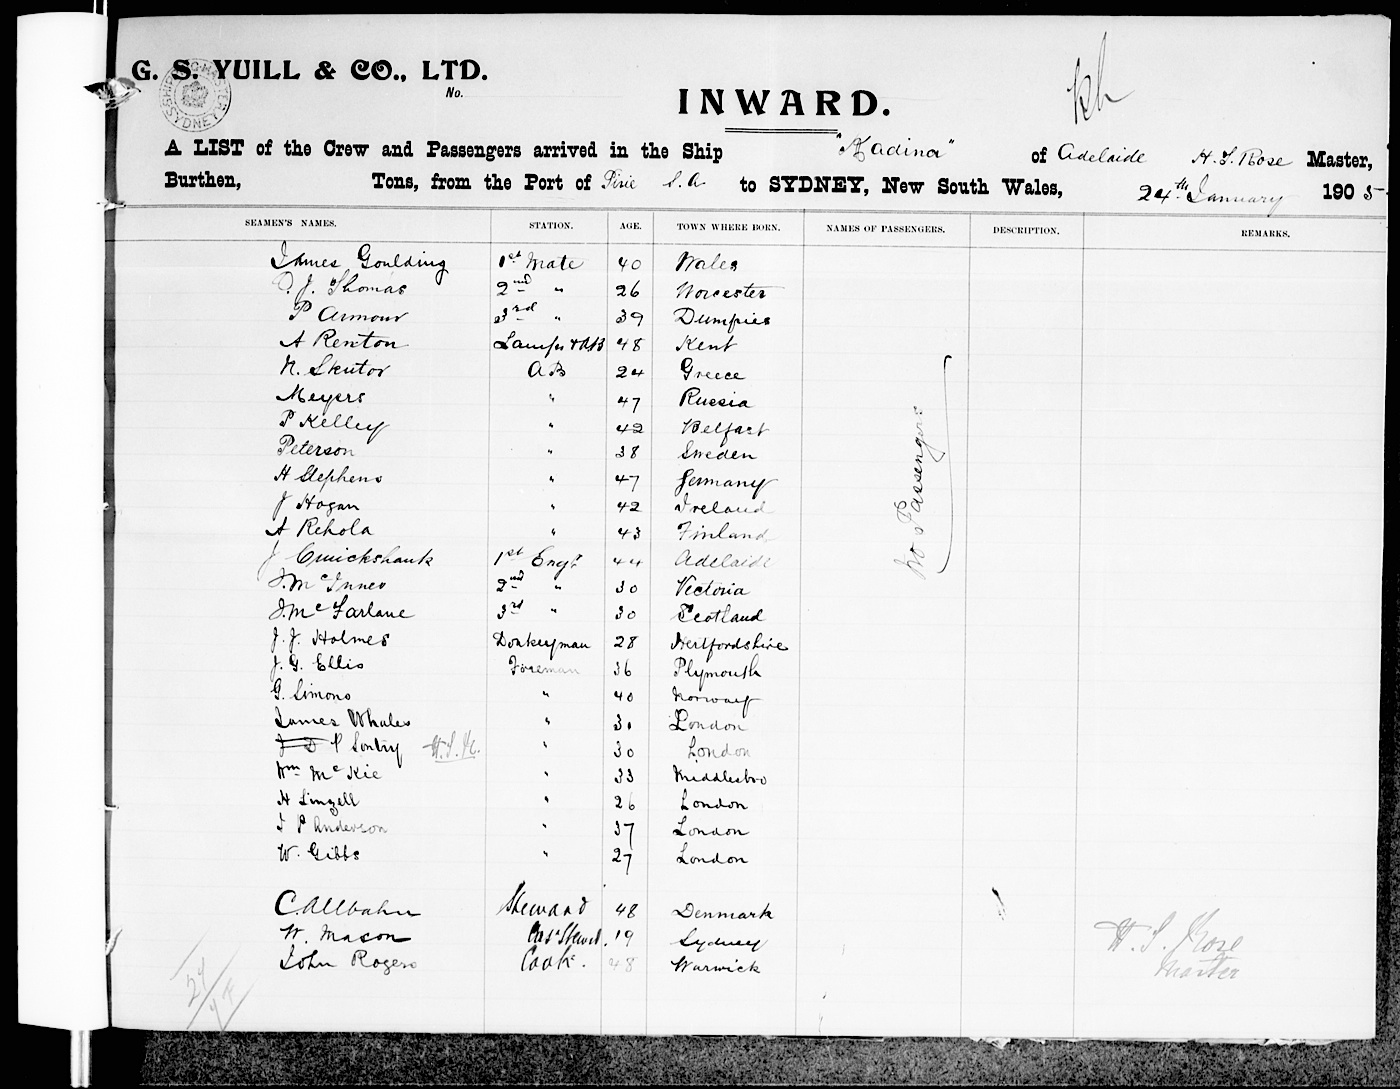 G. S. YUILL & CO., LTD.
No.
SHIPPING MASTER SYDNEY
INWARD.
A LIST of the Crew and Passengers arrived in the Ship "Kadina" of Adelaide H. S. Rose Master,
Burthen, Tons, from the Port of Pirie S.A to SYDNEY, New South Wales, 24th January 1905
SEAMEN'S NAMES. STATION. AGE. TOWN WHERE BORN. NAMES OF PASSENGERS. DESCRIPTION. REMARKS.
James Goulding 1st Mate 40 Wales
J. Thomas 2nd " 26 Worcester
P Armour 3rd " 39 Dumfries
A Renton Lamps & AB 48 Kent
N. Skutor AB 24 Greece
Meyers " 47 Russia
P Kelley " 42 Belfast
Peterson " 38 Sweden
H Stephens " 47 Germany
J Hogan " 42 Ireland
A Rehola " 43 Finland
J Cruickshank 1st Engr 44 Adelaide
J. McInnes 2nd " 30 Victoria
J. McFarlane 3rd " 30 Scotland
J. J. Holmes Donkeyman 28 Hertfordshire
J. G. Ellis Fireman 36 Plymouth
G. Simons " 40 Norway
James Whales " 30 London
J D P Sontry H.S.R. " 30 London
Wm McKie " 33 Middlesbro
H Linzell " 26 London
J P Anderson " 37 London
W. Gibbs " 27 London
No Passengers
C. Allbahn Steward 48 Denmark
W. Mason 19 Sydney
John Rogers Cook. 48 Warwick
H. S. Rose
Master